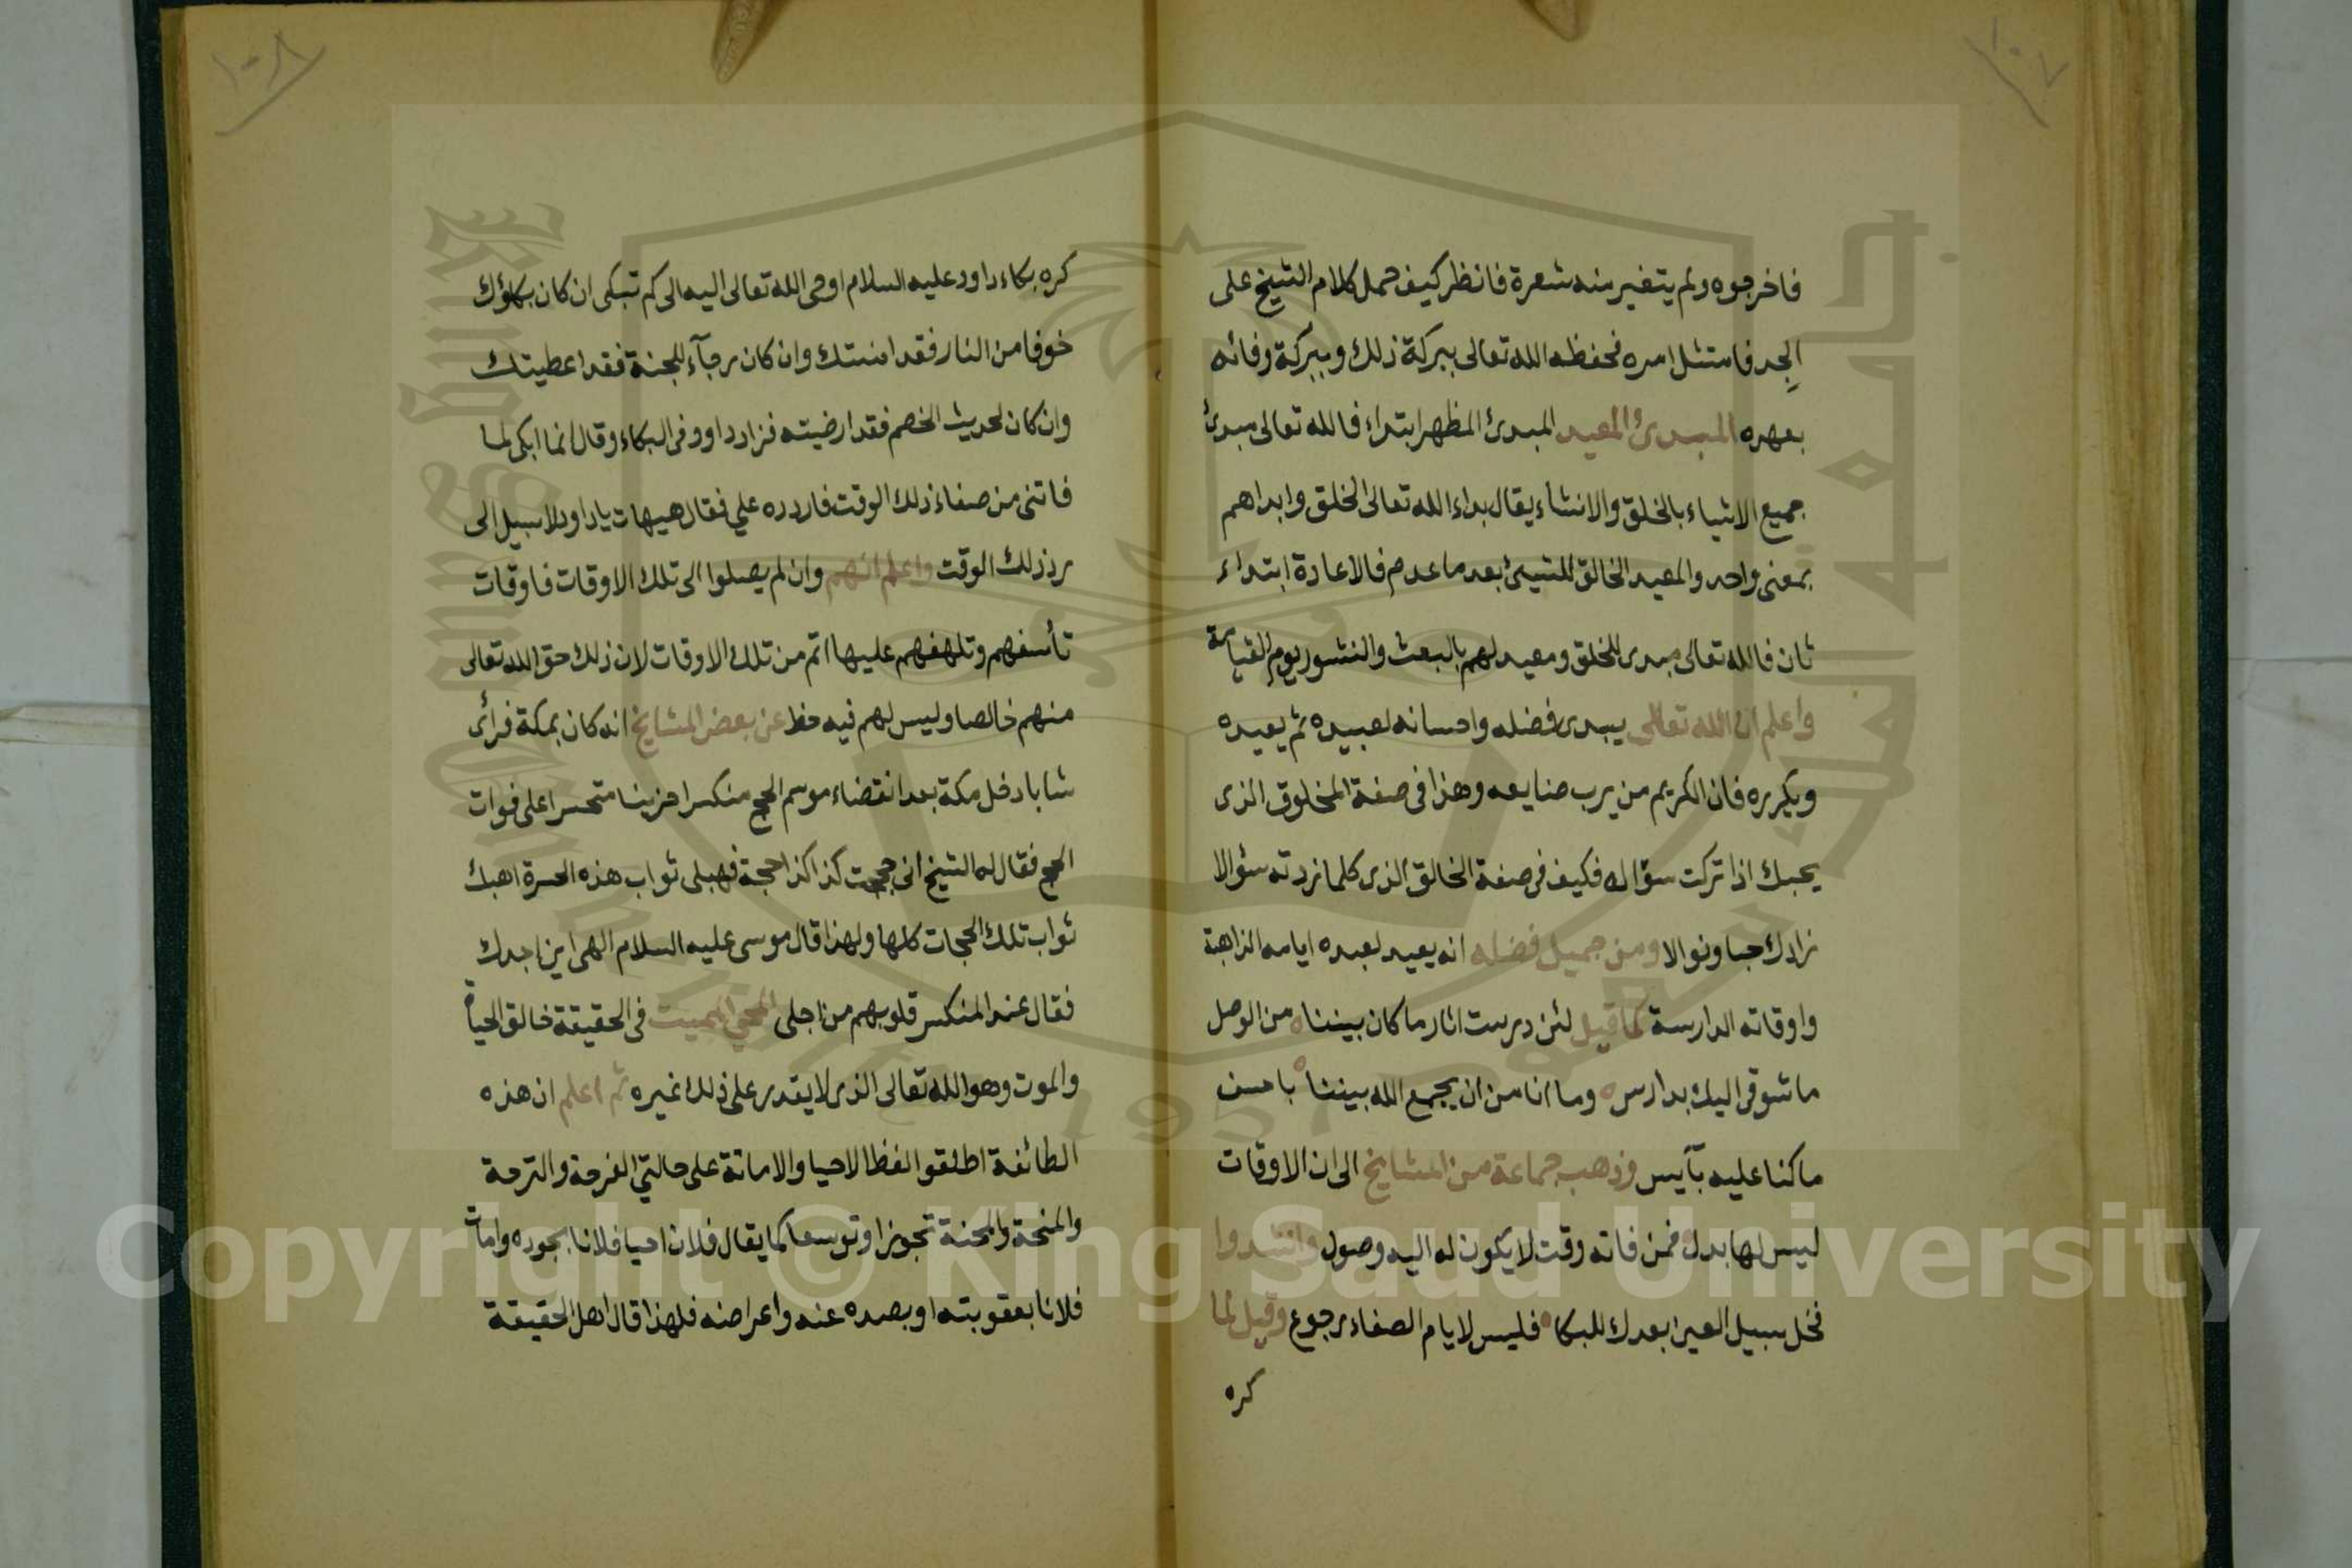 ١٠٧
فاخرجوه ولم يتغير منه شعرة فانظر كيف حمل كلام الشيخ على
الجد فامتثل امره فحفظه الله تعالى ببركة ذلك وببركة وفائه
بعهره المبدئ المعيد المبدئ المظهر ابتداء فالله تعالى مبدئ
جميع الاشياء بالخلق والانشاء يقال بداء الله تعالى الخلق وابداهم
بمعنى واحد والمعيد الخالق للشيئ بعد ما عدم فالاعادة ابتداء
ثان فالله تعالى مبدى للخلق ومعيد لهم بالبعث والنشور يوم القيامة
واعلم ان الله تعالى يبدى فضله واحسانه لعبيده ثم يعيده
ويكرره فان الكريم من يرب صنايعه وهذا فى صفة المخلوق الذى
يحبك اذا تركت سؤاله فكيف فى صفة الخالق الذى كلما زدته سؤالا
زادك حبا ونوالا ومن جميل فضله انه يعيد لعبده ايامه الذاهبة
واوقاته الدارسة كما قيل لئن درست اثار ما كان بيننا ه من الوصل
ما شوقى اليك بدارس ه وما انا من ان يجمع الله بيننا ه باحسن
ما كنا عليه بآيس وذهب جماعة من المشايخ الى ان الاوقات
ليس لها بدل فمن فاته وقت لا يكون له اليه وصول وانشدوا
فخل سبيل العين بعدك للبكا ه فليس لايام الصفاء رجوع وقيل لما
كره
١٠٨
كره بكاء داود عليه السلام اوحى الله تعالى اليه الى كم تبكى ان كان بكاؤك
خوفا من النار فقد امنتك وان كان رجآء للجنة فقد اعطيتك
وان كان لحديث الخصم فقد ارضيته فزاد داوود فى البكاء وقال انما ابكى لما
فاتنى من صفاء ذلك الوقت فاردده علي فقال هيهات يا داود لا سبيل الى
رد ذلك الوقت واعلم انهم وان لم يصلوا الى تلك الاوقات فاوقات
تأسفهم وتلهفهم عليها اتم من تلك الاوقات لان ذلك حق الله تعالى
منهم خالصا وليس لهم فيه حظ عن بعض المشايخ انه كان بمكة فرأى
شابا دخل مكة بعد انقضاء موسم الحج منكسرا حزينا متحسرا على فوات
الحج فقال له الشيخ انى حججت كذا كذا حجة فهبلى ثواب هذه الحسرة اهبك
ثواب تلك الحجات كلها ولهذا قال موسى عليه السلام الهى اين اجدك
فقال عند المنكسر قلوبهم من اجلى المحيي المميت فى الحقيقة خالق الحياة
والموت وهو الله تعالى الذى لا يقدر على ذلك غيره ثم اعلم ان هذه
الطائفة اطلقوا لفظ الاحيا والاماتة على حالتي الفرحة والترحة
والمنحة والمحنة تجوزا وتوسعا كما يقال فلان احيا فلانا بجوده وامات
فلانا بعقوبته او بصده عنه واعراضه فلهذا قال اهل الحقيقة
Copyright © King Saud University
1957